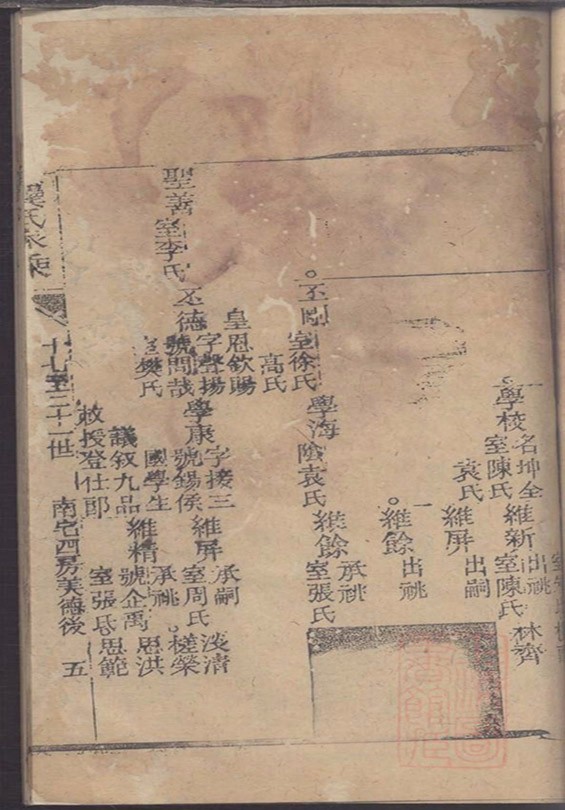 學校
名坤全
室陳氏
袁氏
維新
出祧
室陳氏
林齊
維屏
出嗣
維餘
出祧
丕剛
室徐氏
高氏
學海
陰袁氏
維餘
承祧
室張氏
聖善
室李氏
丕德
皇恩欽賜
字聲揚
號問哉
室樊氏
學康
字接三
號錫侯
國學生
議叙九品
敕授登仕郎
維屏
承嗣
室周氏
淡清
槎榮
維精
承祧
號企禹
室張氏
思洪
思範
氏家乘
十七至二十一世
南宅四房美德後
五